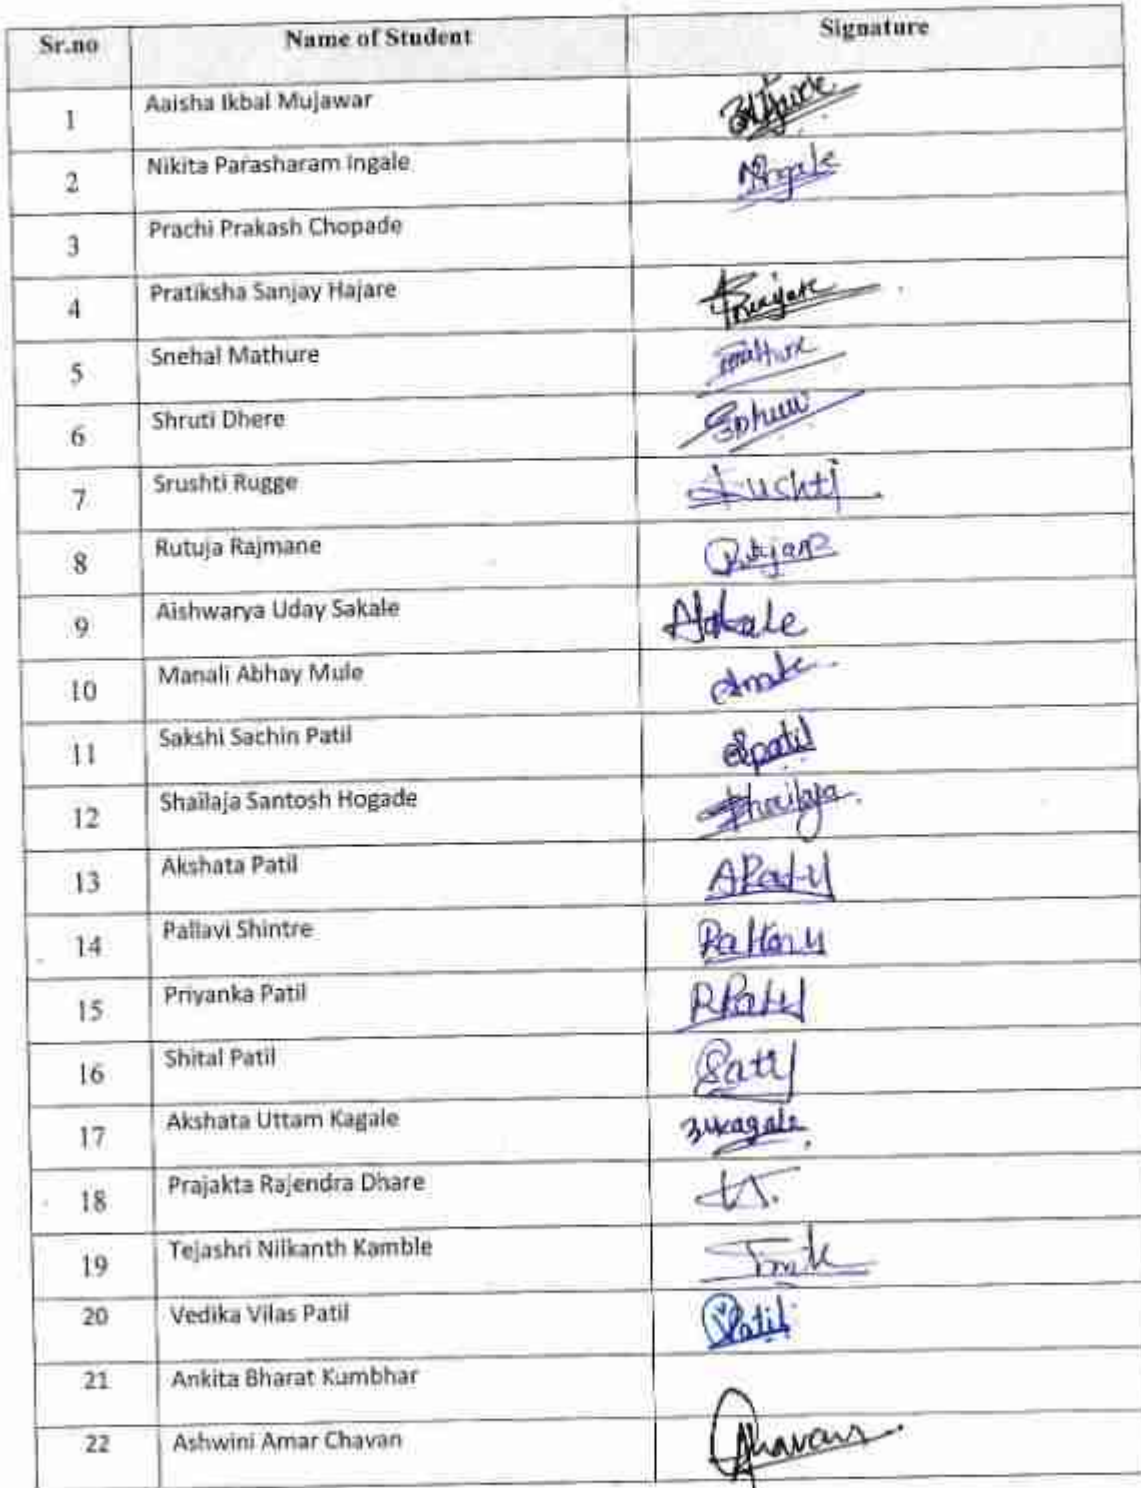 Sr.no Name of Student Signature
1 Aaisha Ikbal Mujawar
2 Nikita Parasharam Ingale Ningale
3 Prachi Prakash Chopade
4 Pratiksha Sanjay Hajare
5 Snehal Mathure Mathure
6 Shruti Dhere
7 Srushti Rugge Srushti
8 Rutuja Rajmane
9 Aishwarya Uday Sakale
10 Manali Abhay Mule
11 Sakshi Sachin Patil Spatil
12 Shailaja Santosh Hogade Shailaja
13 Akshata Patil APatil
14 Pallavi Shintre
15 Priyanka Patil PPatil
16 Shital Patil
17 Akshata Uttam Kagale
18 Prajakta Rajendra Dhare
19 Tejashri Nilkanth Kamble
20 Vedika Vilas Patil VPatil
21 Ankita Bharat Kumbhar
22 Ashwini Amar Chavan AChavan